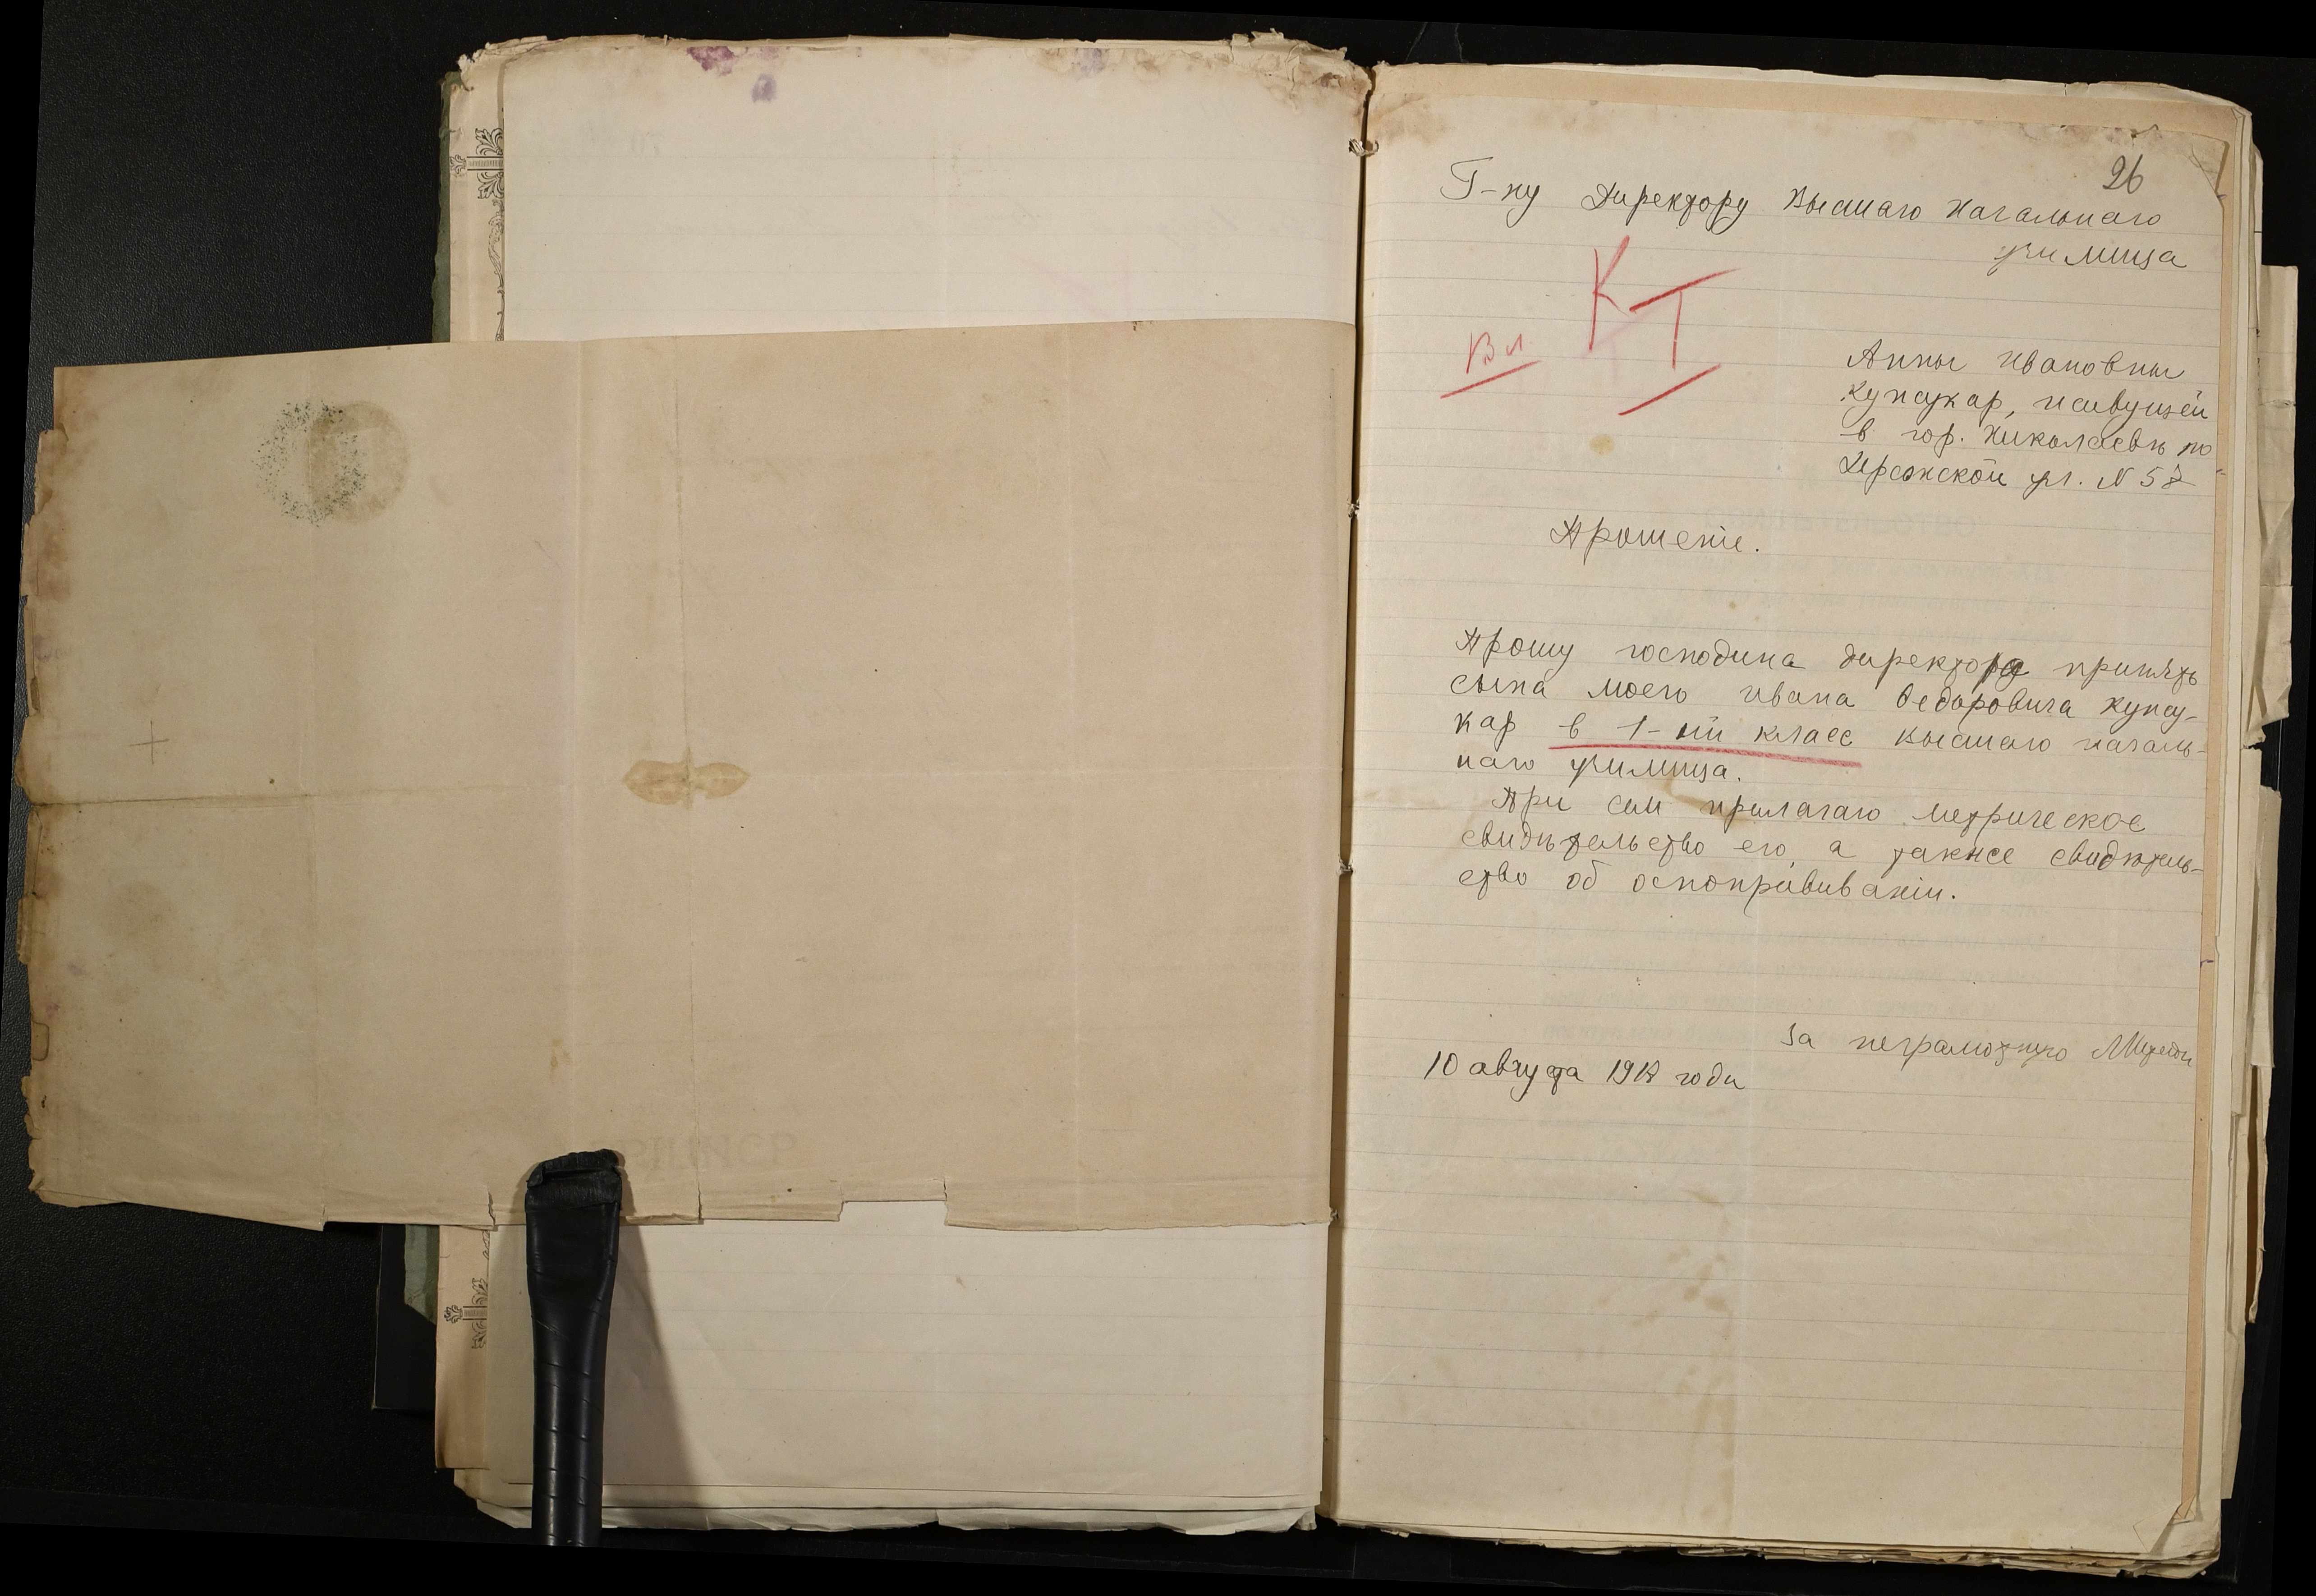 26
Г-ну Директору Высшаго Начальнаго
училища
КТ
Вл
Анны Ивановны
живущей
в гор. Николаевѣ по
Херсонской ул. N 57
Прошенiе.
Прошу господина директора принять
сына моего Ивана Федоровича
кар в 1-ый класс высшаго началь-
наго училища.
При сем прилагаю метрическое
свидѣтельство его, а также свидѣтель-
ство об оспопрививанiи.
За неграмотную
10 августа года